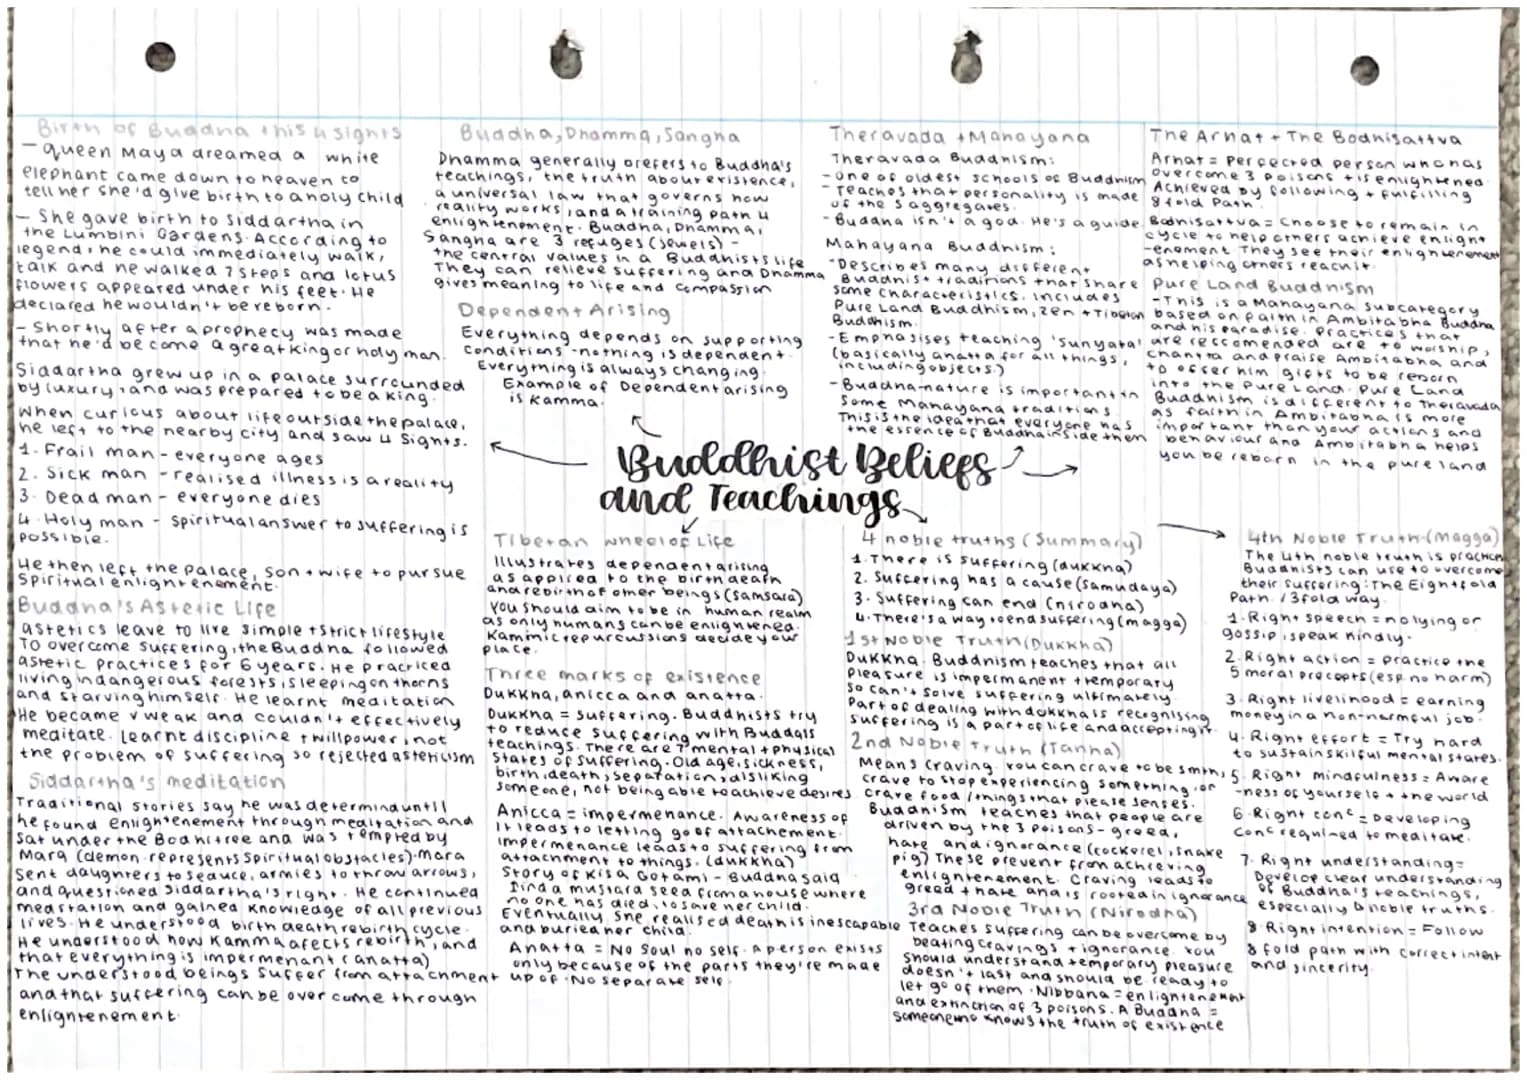 Birth of Buddha + his 4 signts
- queen Maya dreamed a white
elephant came down to heaven to
tell her she'd give birth to a holy child
- She gave birth to Siddartha in
the Lumbini Gardens. According to
legend, he could immediately walk,
talk and he walked 7 steps and lotus
flowers appeared under his feet. He
declared he wouldn't be reborn.
- Shortly after a prophecy was made
that he'd become a great king or holy man.
Siddartha grew up in a palace surrounded
by luxury, and was prepared to be a king.
When curious about life outside the palace,
he left to the nearby city and saw 4 signs.
1. Frail man - everyone ages
2. Sick man - realised illness is a reality
3. Dead man - everyone dies
4. Holy man - Spiritual answer to suffering is
possible.
He then left the palace, son + wife to pursue
spiritual enlightenement.
Buddha's Astetic Life
astetics leave to live simple + strict lifestyle
To overcome suffering, the Buddha followed
astetic practices for 6 years. He practiced
living in dangerous forests, sleeping on thorns
and starving himself. He learnt meditation
He became v weak and couldn't effectively
meditate. Learnt discipline + willpower, not
the problem of suffering so rejected asteticism
Siddartha's meditation
Traditional stories say he was determind until
he found enlightenement through meditation and
sat under the Bodhi tree and was tempted by
Mara (demon-represents spiritual obstacles). Mara
sent daughters to seduce, armies to throw arrows,
and questioned Siddartha's right. He continued
meditation and gained knowledge of all previous
lives. He understood birth death rebirth cycle.
He understood how kamma afects rebirth, and
that everything is impermenant (anatta)
The understood beings suffer from attachment
and that suffering can be over come through
enlightenement.
Buddha, Dhamma, Sangha
Dhamma generally prefers to Buddha's
teachings, the truth about existence,
a universal law that governs how
reality works, and a training path 4
enlightenement. Buddha, Dhamma,
Sangha are 3 refuges (jewels) -
the central values in a Buddhists life
They can relieve suffering and Dhamma
gives meaning to life and compassion
Dependent Arising
Everything depends on supporting
conditions - nothing is dependent.
Everything is always changing.
Example of Dependent arising
is kamma.
Theravada + Mahayana
Theravada Buddhism:
- one of oldest schools of Buddhism
- Teaches that personality is made
of the 5 aggregates.
- Buddha isn't a god. He's a guide.
Mahayana Buddhism:
- Describes many different
Buddhist traditions that share
same characteristics. includes
Pure Land Buddhism, Zen + Tibetan
Buddhism.
- Emphasises teaching 'sunyata'
(basically anatta for all things,
including objects.)
- Buddha-nature is important in
some Mahayana traditions
This is the idea that everyone has
the essence of Buddha inside them
The Arhat + The Bodhisattva
Arhat = Perfected person who has
overcome 3 poisons + is enlightened.
Achieved by following + fulfilling
8 fold Path.
Bodhisattva = Choose to remain in
cycle to help others achieve enlight
-enement They see their enlightenement
as helping others reach it.
Pure Land Buddhism
- This is a Mahayana subcategory
based on faith in Ambitabha Buddha
and his paradise. Practices that
are reccomended are to worship,
chant and praise Ambitabha and
to offer him gifts to be reborn
into the Pure Land. Pure Land
Buddhism is different to Theravada
as faith in Ambitabha is more
important than your actions and
behaviour and Ambitabha helps
you be reborn in the pure land
Buddhist Beliefs
and Teachings
Tibetan wheel of Life
Illustrates dependent arising
as applied to the birth death
and rebirth of other beings (samsara)
You should aim to be in human realm
as only humans can be enlightened.
Kammic repurcussions decide your
place.
Three marks of existence
Dukkha, anicca and anatta.
Dukkha = suffering. Buddhists try
to reduce suffering with Buddas
teachings. There are 7 mental + physical
states of suffering. Old age, sickness,
birth, death, separation, disliking
someone, not being able to achieve desires
Anicca = impermenance. Awareness of
it leads to letting go of attachement.
impermenance leads to suffering from
attachment to things. (dukkha)
Story of Kisa Gotami - Buddha said
find a mustard seed from a house where
no one has died, to save her child.
Eventually, she realised death is inescapable
and buried her child.
Anatta = No soul no self. A person exists
only because of the parts they're made
up of. No separate self.
4 noble truths (Summary)
1. There is suffering (dukkha)
2. Suffering has a cause (Samudaya)
3. Suffering can end (nirodha)
4. There's a way to end suffering (magga)
1st Noble Truth (Dukkha)
Dukkha. Buddhism teaches that all
pleasure is impermanent + temporary
so can't solve suffering ultimately
Part of dealing with dukkha is recognising
suffering is a part of life and accepting it.
2nd Noble Truth (Tanha)
Means craving. You can crave to be smth,
crave to stop experiencing something, or
crave food / things that please senses.
Buddhism teaches that people are
driven by the 3 poisons - greed,
hate and ignorance (cockerel, snake
pig) These prevent from achieving
enlightenement. Craving leads to
greed + hate and is rooted in ignorance
3rd Noble Truth (Nirodha)
Teaches suffering can be overcome by
beating cravings + ignorance. You
should understand temporary pleasure
doesn't last and should be ready to
let go of them. Nibbana = enlightenement
and extinction of 3 poisons. A Buddha =
someone who knows the truth of existence
4th Noble Truth (Magga)
The 4th noble truth is practice
Buddhists can use to overcome
their suffering: The Eightfold
Path / 3 fold way.
1. Right speech = no lying or
gossip, speak kindly.
2. Right action = practice the
5 moral precepts (esp. no harm)
3. Right livelihood = earning
money in a non-harmful job.
4. Right effort = Try hard
to sustain skilful mental states.
5. Right mindfulness = Aware
-ness of yourself + the world
6. Right conc = Developing
conc required to meditate.
7. Right understanding =
Develop clear understanding
of Buddha's teachings,
especially 4 noble truths.
8. Right intention = Follow
8 fold path with correct intent
and sincerity.